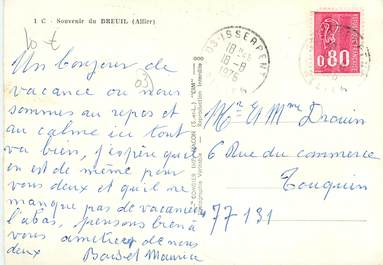 1 C - Souvenir du BREUIL (Allier)
Un bonjour de
vacance ou nous
sommes au repos et
au calme ici tout
va bien, j'espère qu'il
en est de même pour
vous deux et qu'il ne
manque pas de vacanciers
labas, pensons bien à
vous amities de nous
deux Maurice
"COMBIER IMP. MACON (S.-et-L.) "CIM"
Reproduction Interdite
03 ISSERPENT
18 H
18-8
1976
0.80
Mr et Mme Drouin
6 Rue du commerce
Touquin
77131
03